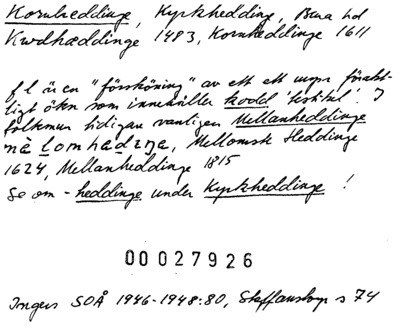 Kornheddinge, Kyrkhedding, Bara hd
Kwdhæddinge 1483, Kornheddinge 1611
f l är en "försköning" av ett ett mera förakt-
ligt ökn som innehåller kodd 'testikel'. I
folkmun tidigare vanligen Mellanheddinge
Mellomsk Heddinge
1624, Mellanheddinge 1815
Se om -heddinge under Kyrkheddinge!
00027926
Ingers SOÅ 1946-1948:80, Staffanstorp s 74